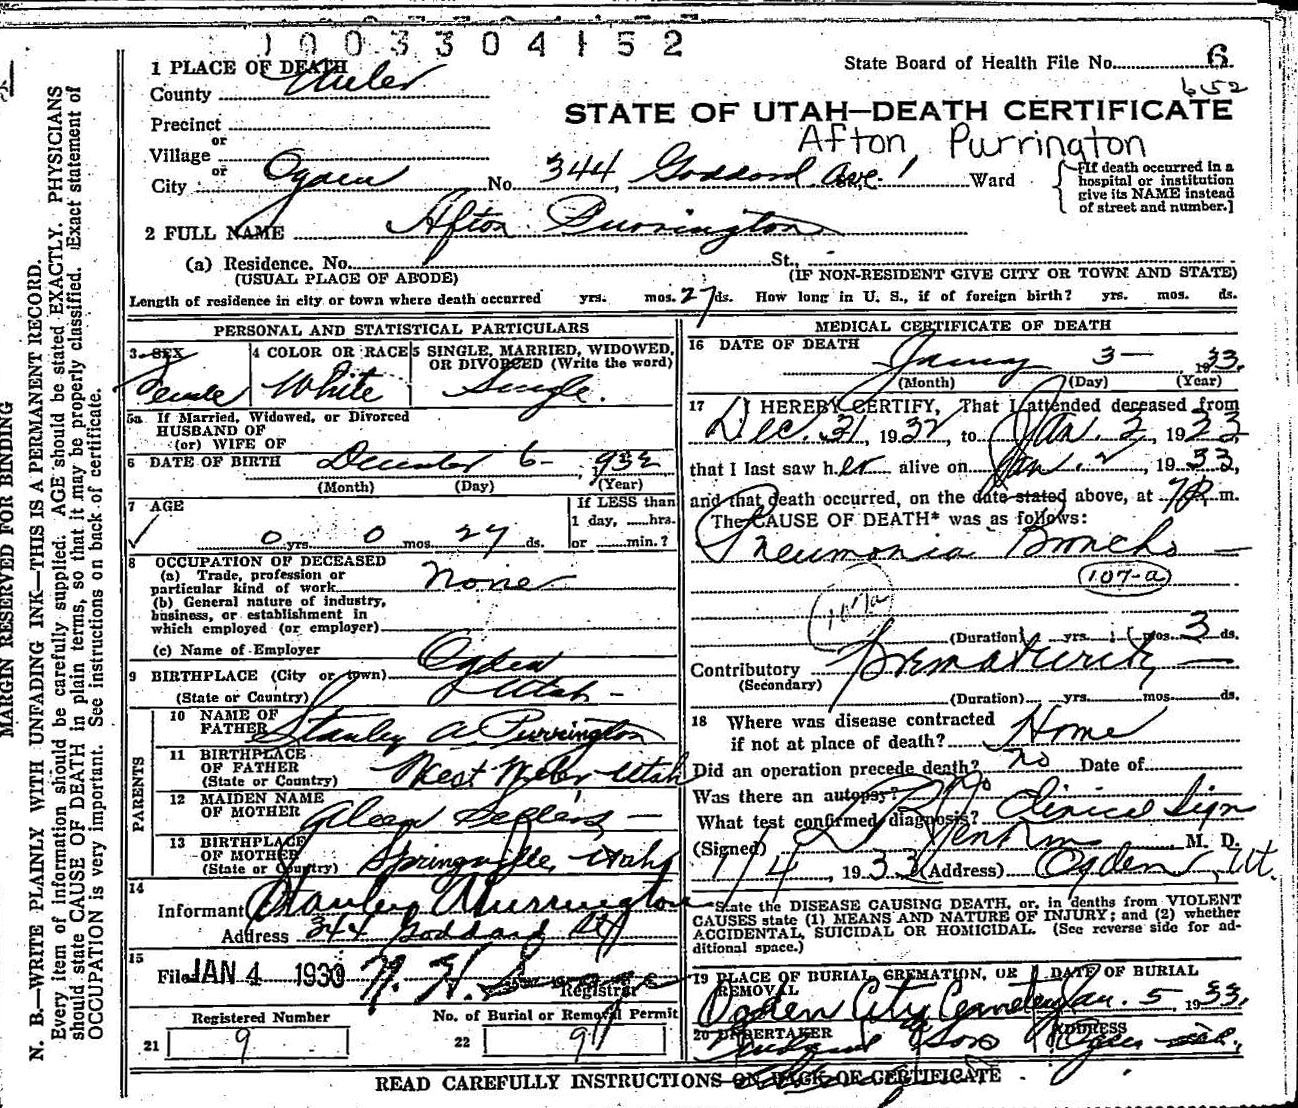 1003304152
1 PLACE OF DEATH
State Board of Health File No. 6
652
County Weber
STATE OF UTAH—DEATH CERTIFICATE
Precinct
or
Afton Purrington
Village
or
City Ogden No. 344 Goddard Ave. Ward
[If death occurred in a
hospital or institution
give its NAME instead
of street and number.]
2 FULL NAME Afton Purrington
(a) Residence. No. St.,
(USUAL PLACE OF ABODE) (IF NON-RESIDENT GIVE CITY OR TOWN AND STATE)
Length of residence in city or town where death occurred yrs. mos. 27 ds. How long in U. S., if of foreign birth? yrs. mos. ds.
PERSONAL AND STATISTICAL PARTICULARS
3 SEX
Female
4 COLOR OR RACE
White
5 SINGLE, MARRIED, WIDOWED,
OR DIVORCED (Write the word)
Single.
5a If Married, Widowed, or Divorced
HUSBAND OF
(or) WIFE OF
6 DATE OF BIRTH December 6- 1932
(Month) (Day) (Year)
7 AGE
If LESS than
1 day, ......hrs.
0 yrs. 0 mos. 27 ds. or ......min.?
8 OCCUPATION OF DECEASED
(a) Trade, profession or
particular kind of work None
(b) General nature of industry,
business, or establishment in
which employed (or employer)
(c) Name of Employer
9 BIRTHPLACE (City or town) Ogden
(State or Country) Utah -
PARENTS
10 NAME OF
FATHER Stanley A. Purrington
11 BIRTHPLACE
OF FATHER West Weber Utah
(State or Country)
12 MAIDEN NAME
OF MOTHER
13 BIRTHPLACE
OF MOTHER Springville, Utah
(State or Country)
14
Informant Stanley A Purrington
Address 344 Goddard St
15
Filed JAN 4 1933 Registrar
Registered Number No. of Burial or Removal Permit
21 9 22 9
MEDICAL CERTIFICATE OF DEATH
16 DATE OF DEATH
January 3- 1933.
(Month) (Day) (Year)
17 I HEREBY CERTIFY, That I attended deceased from
Dec. 31, 1932, to Jan. 2, 1933
that I last saw her alive on Jan. 2, 1933,
and that death occurred, on the date stated above, at m.
The CAUSE OF DEATH* was as follows:
Pneumonia Broncho —
107-a
107a
(Duration) yrs. mos. 3 ds.
Contributory Prematurity —
(Secondary)
(Duration) yrs. mos. ds.
18 Where was disease contracted
if not at place of death? Home
Did an operation precede death? no Date of
Was there an autopsy? No
What test confirmed diagnosis? Clinical Sign
(Signed) Jenkins M. D.
1/4, 1933 (Address) Ogden, Ut.
*State the DISEASE CAUSING DEATH, or, in deaths from VIOLENT
CAUSES state (1) MEANS AND NATURE OF INJURY; and (2) whether
ACCIDENTAL, SUICIDAL OR HOMICIDAL. (See reverse side for ad-
ditional space.)
19 PLACE OF BURIAL, CREMATION, OR REMOVAL
DATE OF BURIAL
Ogden City Cemetery Jan. 5, 1933.
20 UNDERTAKER ADDRESS
& Sons Ogden
READ CAREFULLY INSTRUCTIONS ON BACK OF CERTIFICATE
MARGIN RESERVED FOR BINDING
N. B.—WRITE PLAINLY WITH UNFADING INK—THIS IS A PERMANENT RECORD.
Every item of information should be carefully supplied. AGE should be stated EXACTLY. PHYSICIANS
should state CAUSE OF DEATH in plain terms, so that it may be properly classified. Exact statement of
OCCUPATION is very important. See instructions on back of certificate.